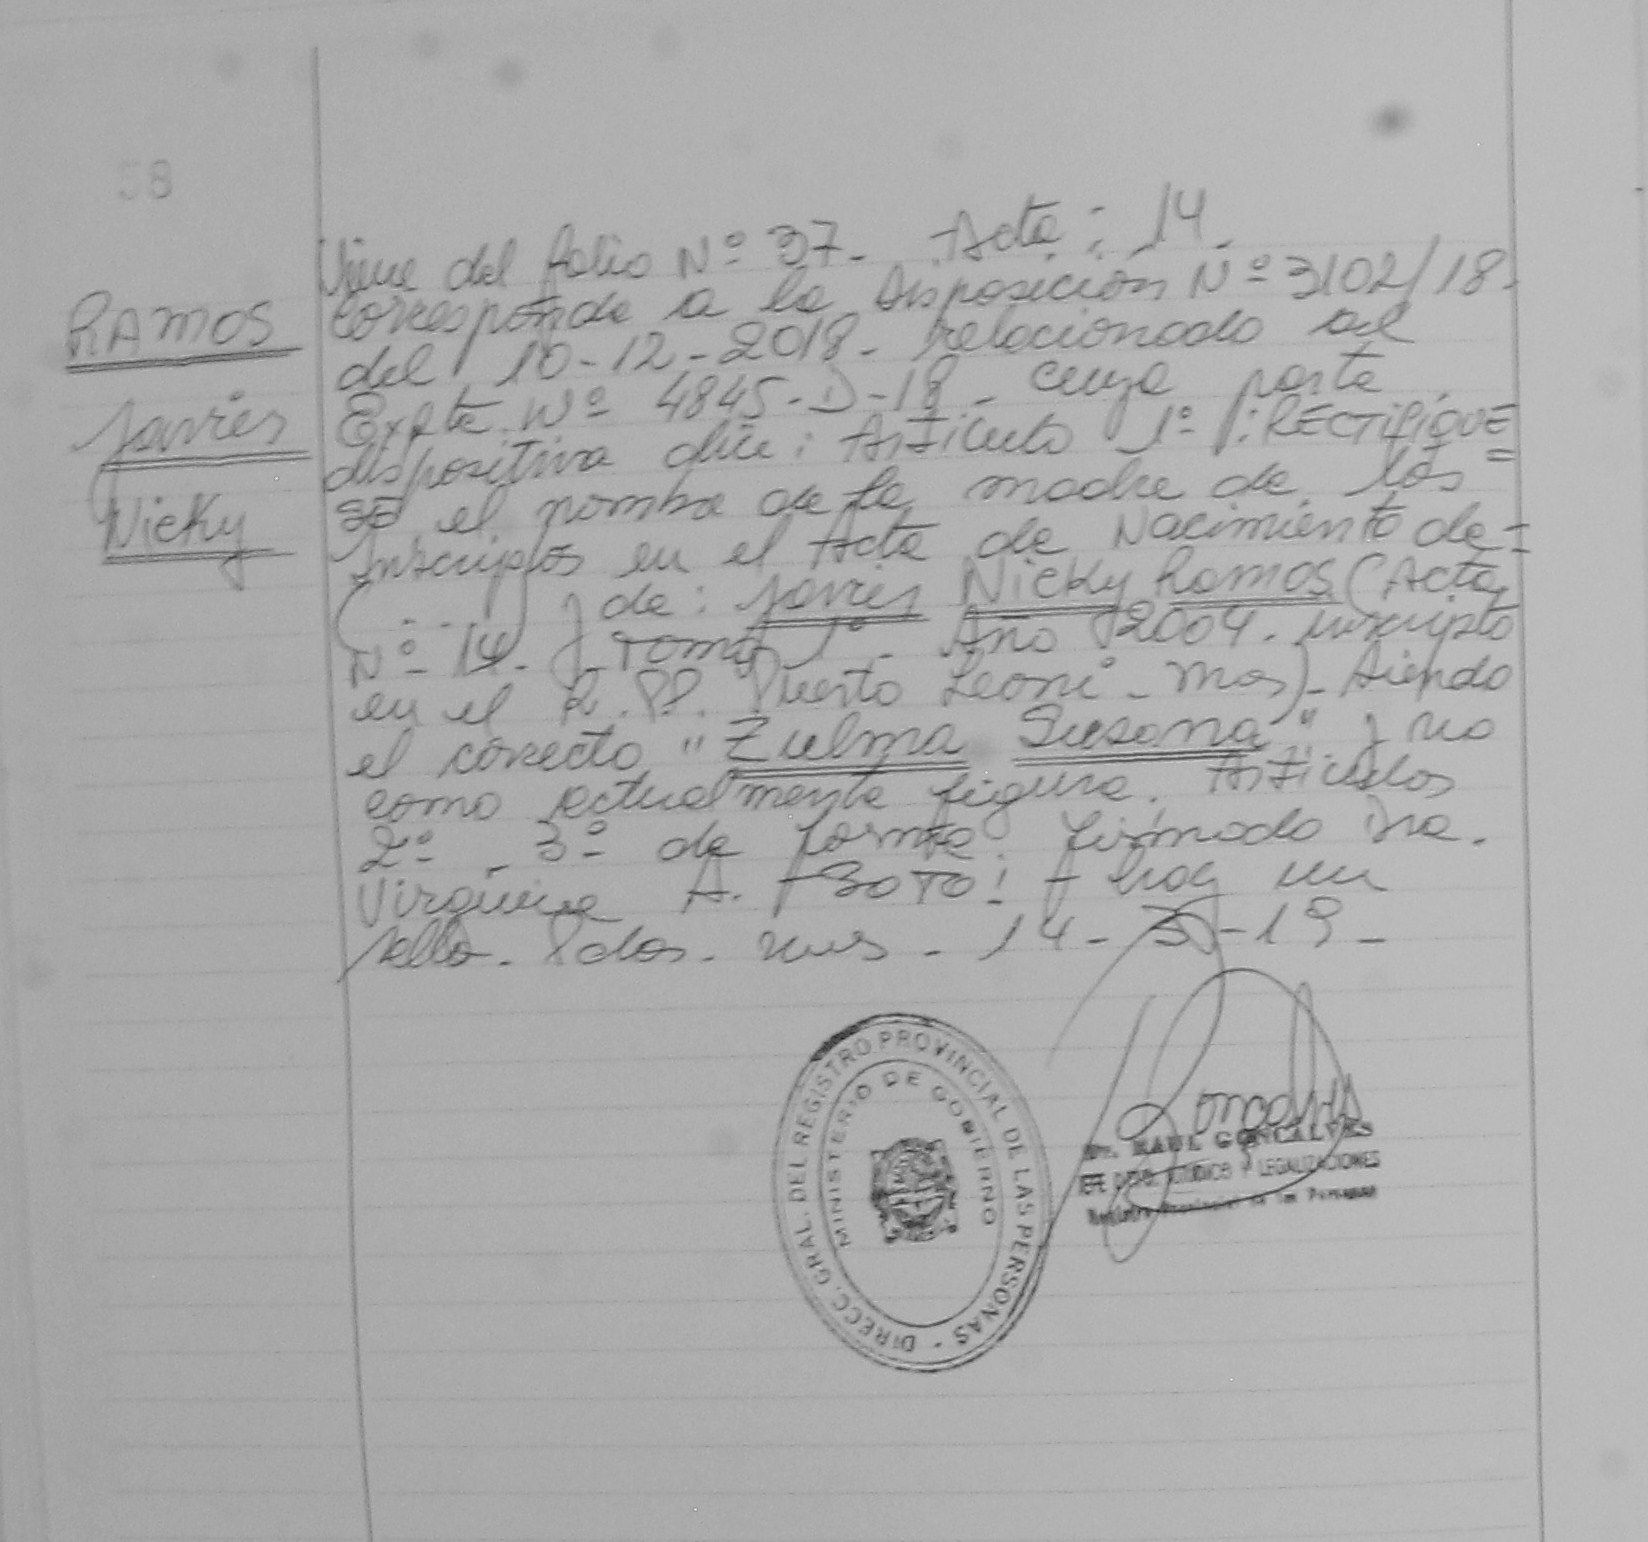 38
Viene del folio Nº 37- Acta: 14.
RAMOS
Javier
Nicky
Corresponde a la Disposición Nº 3102/18.
del 10-12-2018- relacionado al
Expte. Nº 4845-D-18- cuya parte
dispositiva dice: Artículo 1º: RECTIFIQUE=
SE el nombre de la madre de los
Inscriptos en el Acta de Nacimiento de=
(...) y de: Javier Nicky Ramos (Acta
Nº 14- Tomo 1º- Año 2004. inscripto
en el R.P.P. Puerto Leoni- Mns)- siendo
el correcto "Zulma Susana" y no
como actualmente figura. Artículos
2º- 3º- de forma. firmado Dra.
Virginia A. SOTO! hay un
sello. Pdas. Mns. 14- -19-
DIRECC. GRAL. DEL REGISTRO PROVINCIAL DE LAS PERSONAS -
MINISTERIO DE GOBIERNO
Dr. RAUL GONCALVES
JEFE DPTO. JURIDICO Y LEGALIZACIONES
Registro Provincial de las Personas